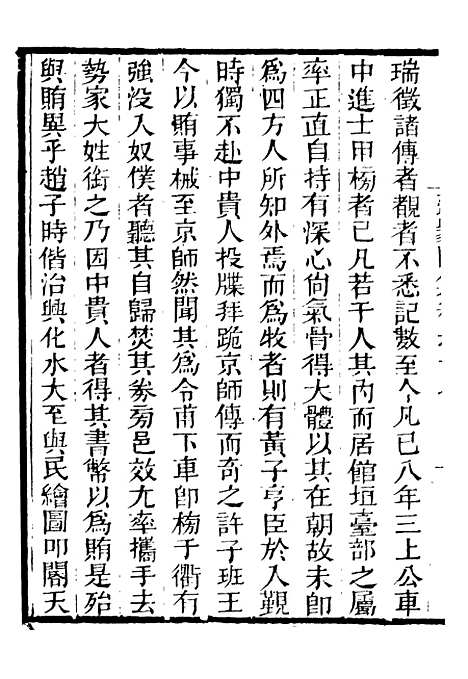 瑞徵諸傳者覩者不悉記數至今凡已八年三上公車
中進士甲榜者已凡若干人其內而居館垣臺部之屬
率正直自持有深心尙氣骨得大體以其在朝故未卽
爲四方人所知外焉而爲牧者則有黃子亨臣於入覲
時獨不赴中貴人投牒拜跪京師傳而奇之許子班王
今以賄事械至京師然聞其爲令甫下車卽榜于衢有
強没入奴僕者聽其自歸焚其劵旁邑效尤率攜手去
勢家大姓銜之乃因中貴人者得其書幣以爲賄是殆
與賄異乎趙子時偕治興化水大至與民繪圖叩閽天